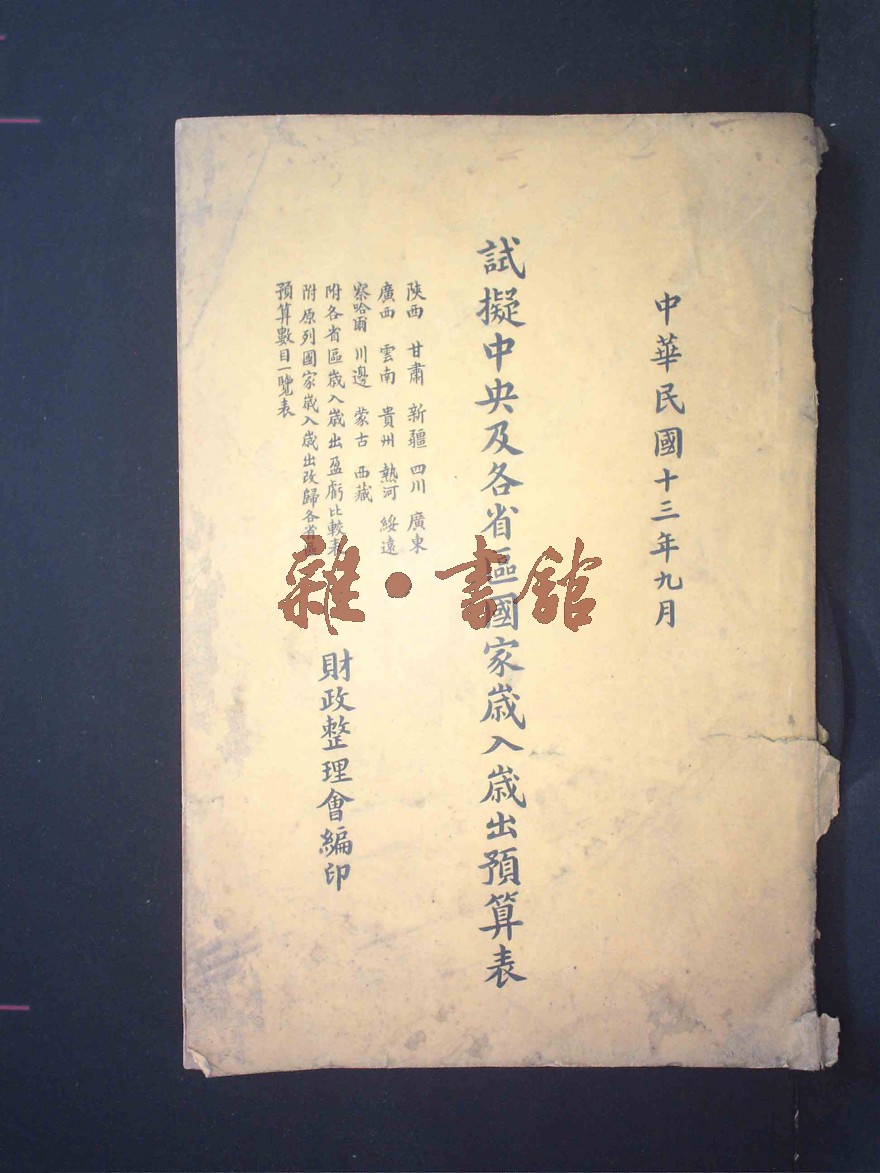 中華民國十三年九月
試擬中央及各省區國家歲入歲出預算表
陝西 甘肅 新疆 四川 廣東
廣西 雲南 貴州 熱河 綏遠
察哈爾 川邊 蒙古 西藏
附各省區歲入歲出盈虧比較表
附原列國家歲入歲出改歸各省區
預算數目一覽表
財政整理會編印
雜·書館